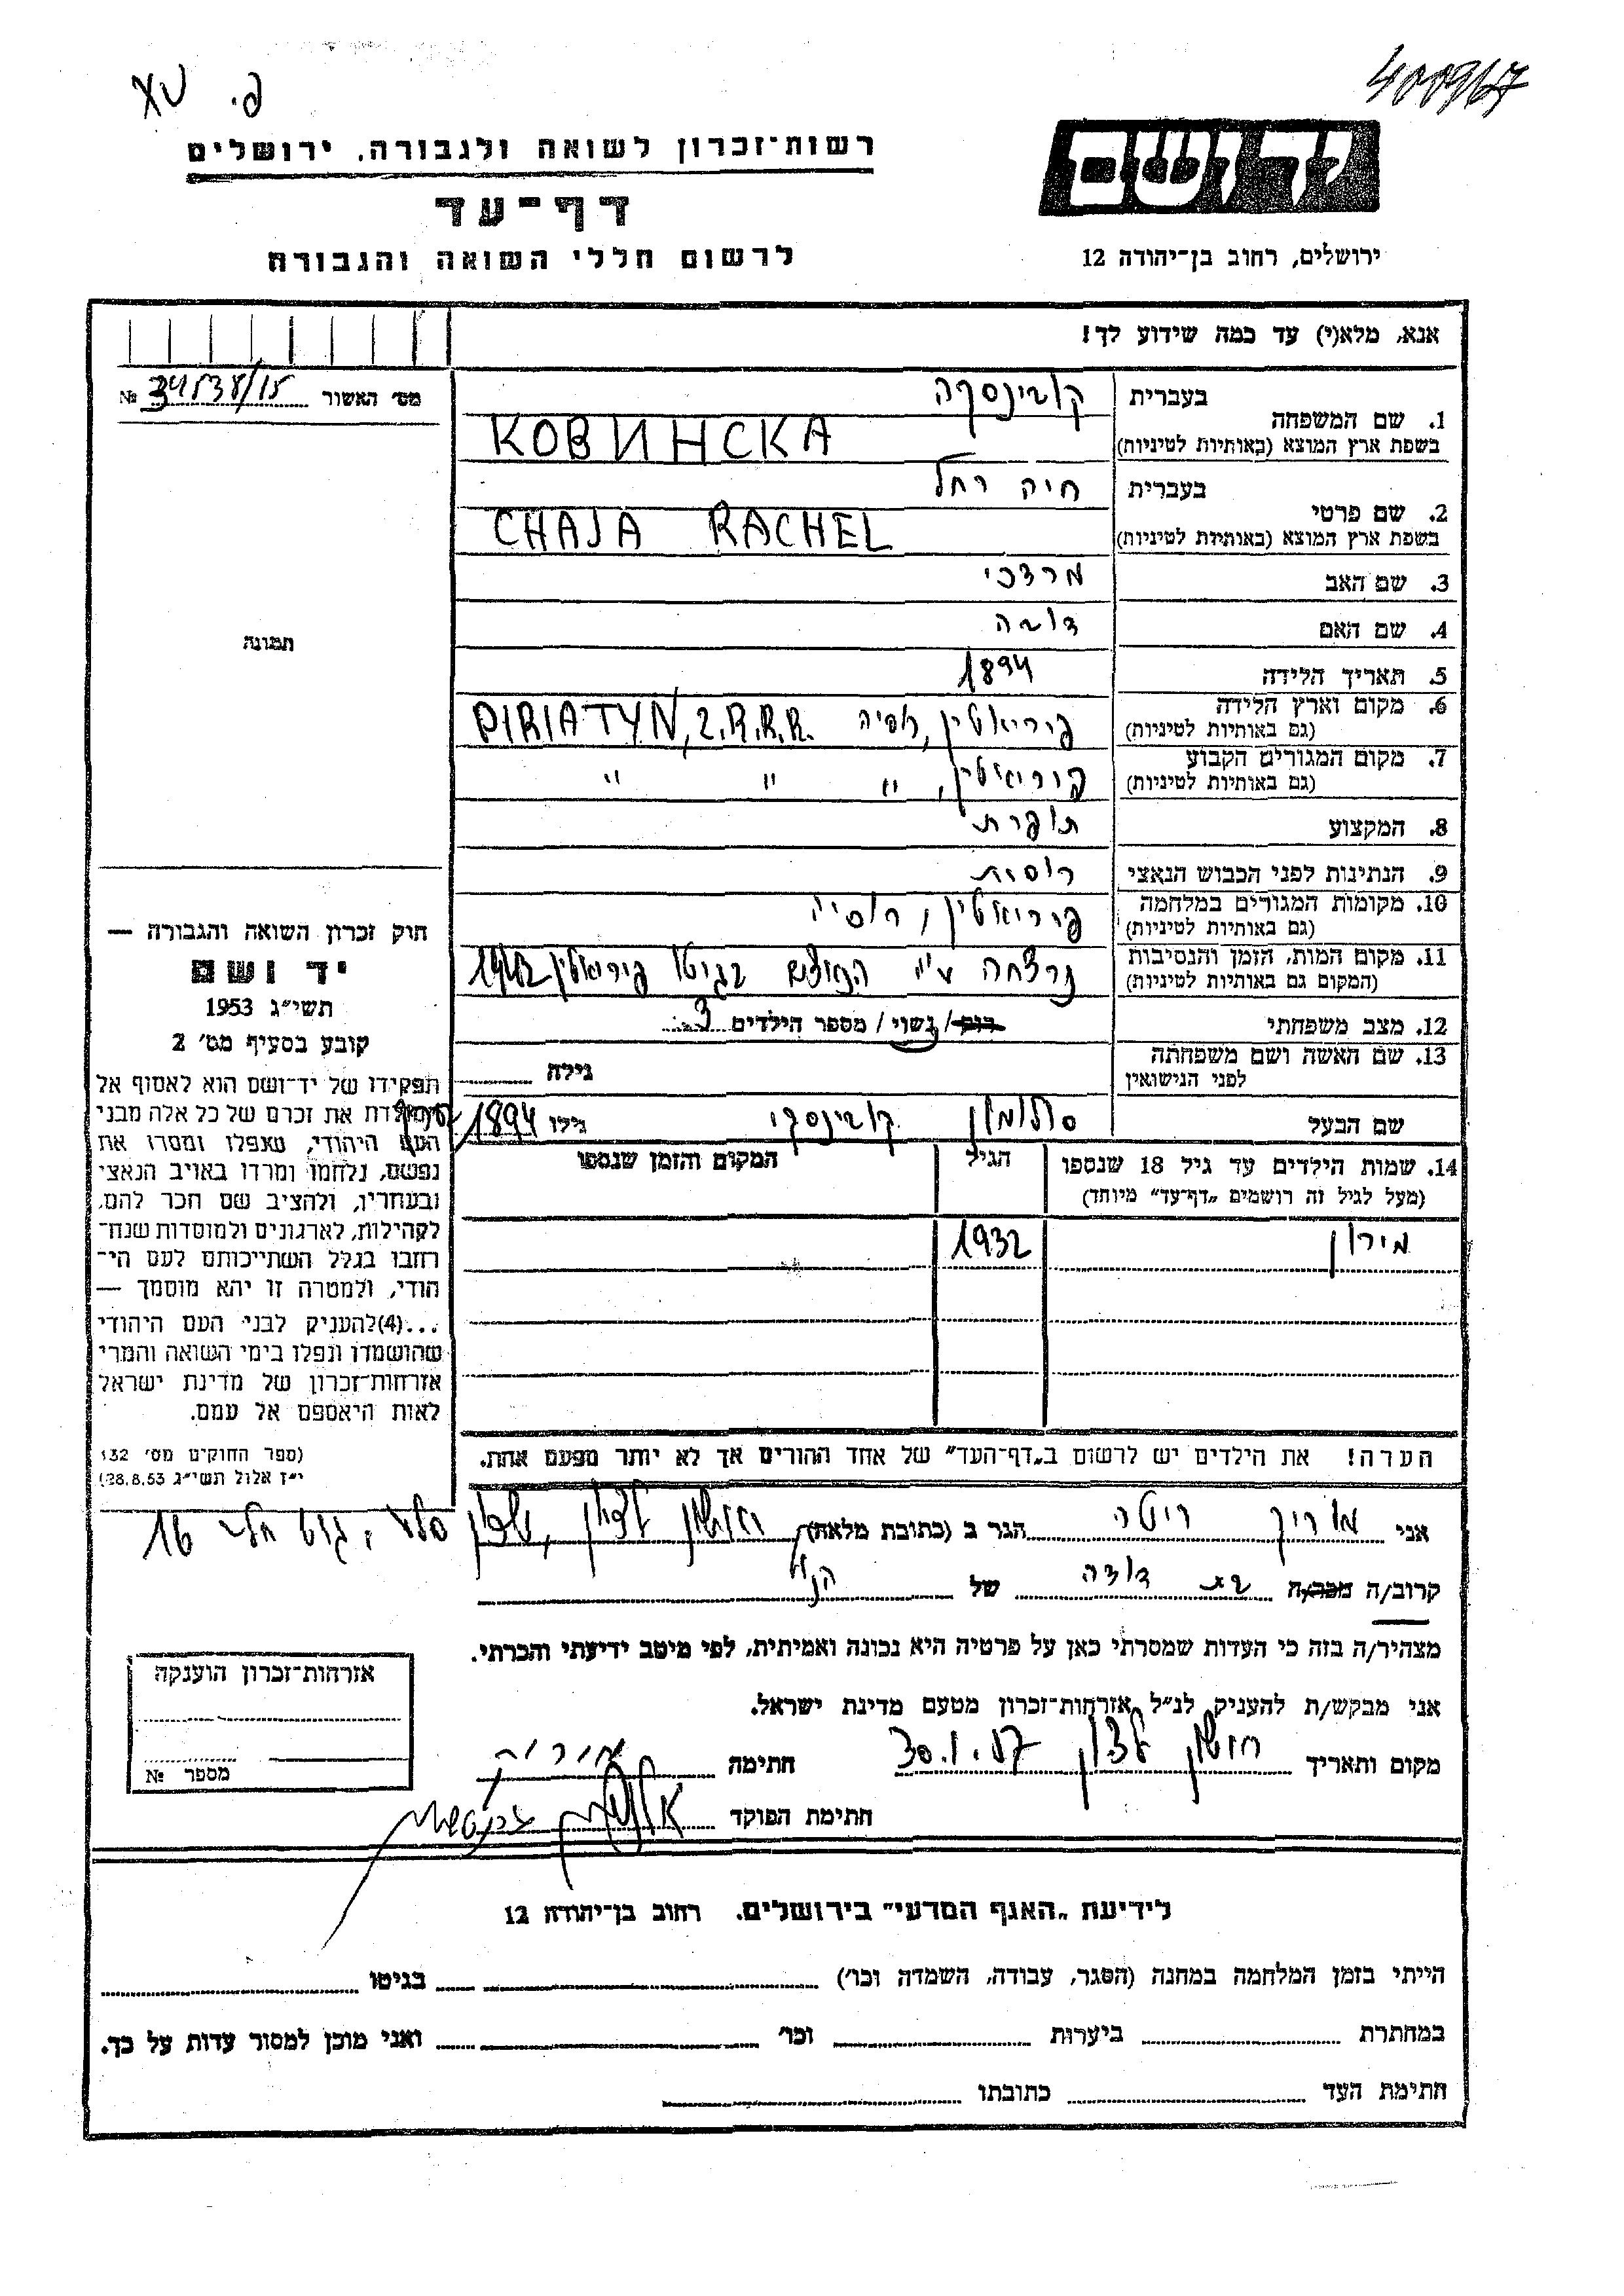 400967
פ. XV
יד ושם
רשות־זכרון לשואה ולגבורה. ירושלים
דף־עד
לרשום חללי השואה והגבורה
ירושלים, רחוב בן־יהודה 12
אנא, מלא(י) עד כמה שידוע לך!
מס׳ האשור № 34538/15
1. שם המשפחה
בעברית קובינסקה
בשפת ארץ המוצא (באותיות לטיניות) КОВИНСКА
2. שם פרטי
בעברית חיה רחל
בשפת ארץ המוצא (באותיות לטיניות) CHAJA RACHEL
3. שם האב מרדכי
4. שם האם דובה
5. תאריך הלידה 1894
6. מקום וארץ הלידה
(גם באותיות לטיניות) פיריאטין, רוסיה PIRIATYN, Z.R.R.R.
7. מקום המגורים הקבוע
(גם באותיות לטיניות) פיריאטין, " " "
8. המקצוע תופרת
9. הנתינות לפני הכבוש הנאצי רוסית
10. מקומות המגורים במלחמה
(גם באותיות לטיניות) פיריאטין, רוסיה
11. מקום המות, הזמן והנסיבות
(המקום גם באותיות לטיניות) נרצחה ע״י הנאצים בגיטו פיריאטין 1942
12. מצב משפחתי רוק/נשוי/ מספר הילדים 3
13. שם האשה ושם משפחתה
לפני הנישואין גילה
שם הבעל סולומון קובינסקי גילו 1894
14. שמות הילדים עד גיל 18 שנספו הגיל המקום והזמן שנספו
(מעל לגיל זה רושמים „דף־עד” מיוחד)
מירון 1932
הערה! את הילדים יש לרשום ב„דף־העד” של אחד ההורים אך לא יותר מפעם אחת.
תמונה
חוק זכרון השואה והגבורה —
יד ושם
תשי״ג 1953
קובע בסעיף מס׳ 2
תפקידו של יד־ושם הוא לאסוף אל
המולדת את זכרם של כל אלה מבני
העם היהודי, שנפלו ומסרו את
נפשם, נלחמו ומרדו באויב הנאצי
ובעוזריו, ולהציב שם וזכר להם,
לקהילות, לארגונים ולמוסדות שנח־
רבו בגלל השתייכותם לעם הי־
הודי, ולמטרה זו יהא מוסמך —
...(4) להעניק לבני העם היהודי
שהושמדו ונפלו בימי השואה והמרי
אזרחות־זכרון של מדינת ישראל
לאות היאספם אל עמם.
(ספר החוקים מס׳ 132
י״ז אלול תשי״ג 28.8.53)
אני מוריק ריטה הגר ב (כתובת מלאה) ראשון לציון, שיכון סלע, 16
קרוב/ה מכר/ה בת דודה של הנ״ל
מצהיר/ה בזה כי העדות שמסרתי כאן על פרטיה היא נכונה ואמיתית, לפי מיטב ידיעתי והכרתי.
אני מבקש/ת להעניק לנ״ל אזרחות־זכרון מטעם מדינת ישראל.
מקום ותאריך ראשון לציון 30.1.57 חתימה מוריק
חתימת הפוקד
אזרחות־זכרון הוענקה
מספר №
לידיעת „האגף המדעי” בירושלים. רחוב בן־יהודה 12
הייתי בזמן המלחמה במחנה (הסגר, עבודה, השמדה וכו׳) בגיטו
במחתרת ביערות וכו׳ ואני מוכן למסור עדות על כך.
חתימת העד כתובתו